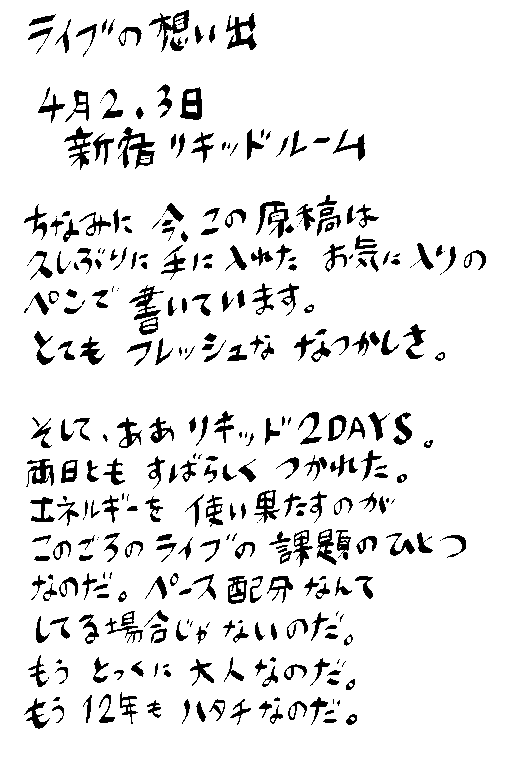 ライブの想い出
4月2、3日
新宿リキッドルーム
ちなみに 今、この原稿は
久しぶりに手に入れた お気に入りの
ペンで書いています。
とても フレッシュな なつかしさ。
そして、ああ リキッド2DAYS。
両日とも すばらしく つかれた。
エネルギーを 使い果たすのが
このごろのライブの課題のひとつ
なのだ。ペース配分なんて
してる場合じゃないのだ。
もう とっくに 大人なのだ。
もう 12年も ハタチなのだ。